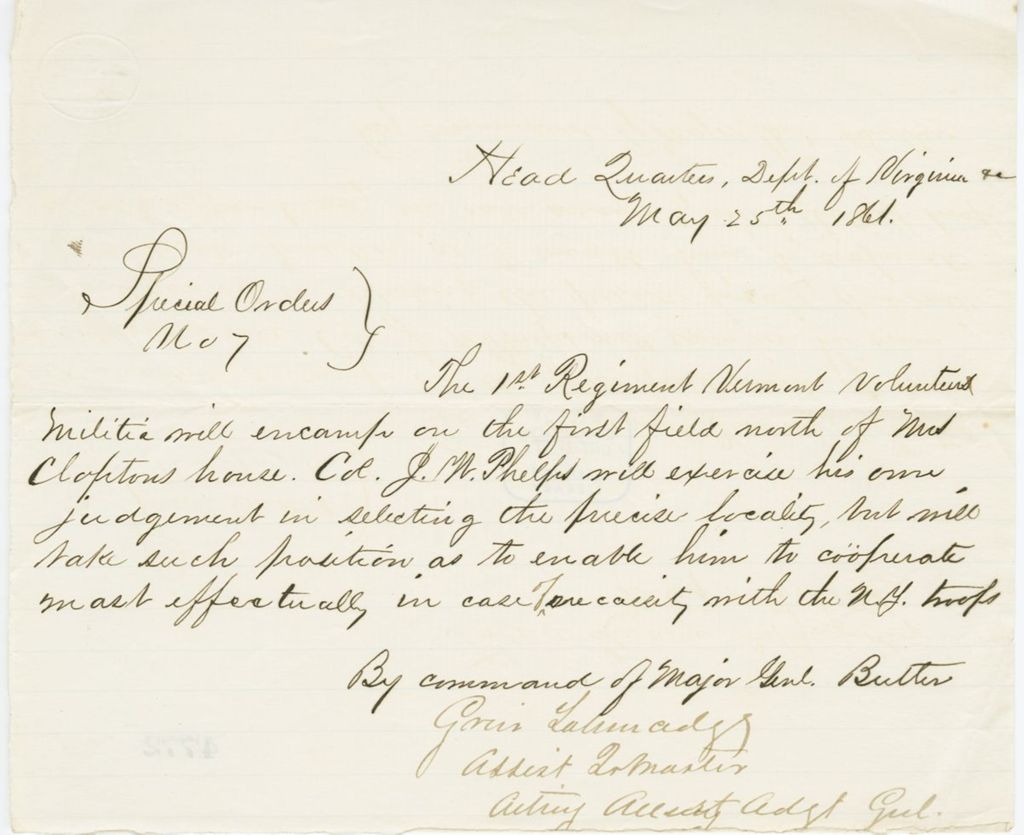 Head Quarters, Dept. of Virginia &c
May 25th 1861.
Special Orders
No 7
The 1st Regiment Vermont Volunteers
Militia will encamp on the first field north of Mrs
Cloptons house. Col. J. W. Phelps will exercise his own
judgement in selecting the precise locality, but will
take such position as to enable him to coöperate
most effectually in case of necessity with the N.Y. troops
By command of Major Genl. Butler
Grier Talmadge
Assist Qr Master
Acting Assist Adgt Gnl.